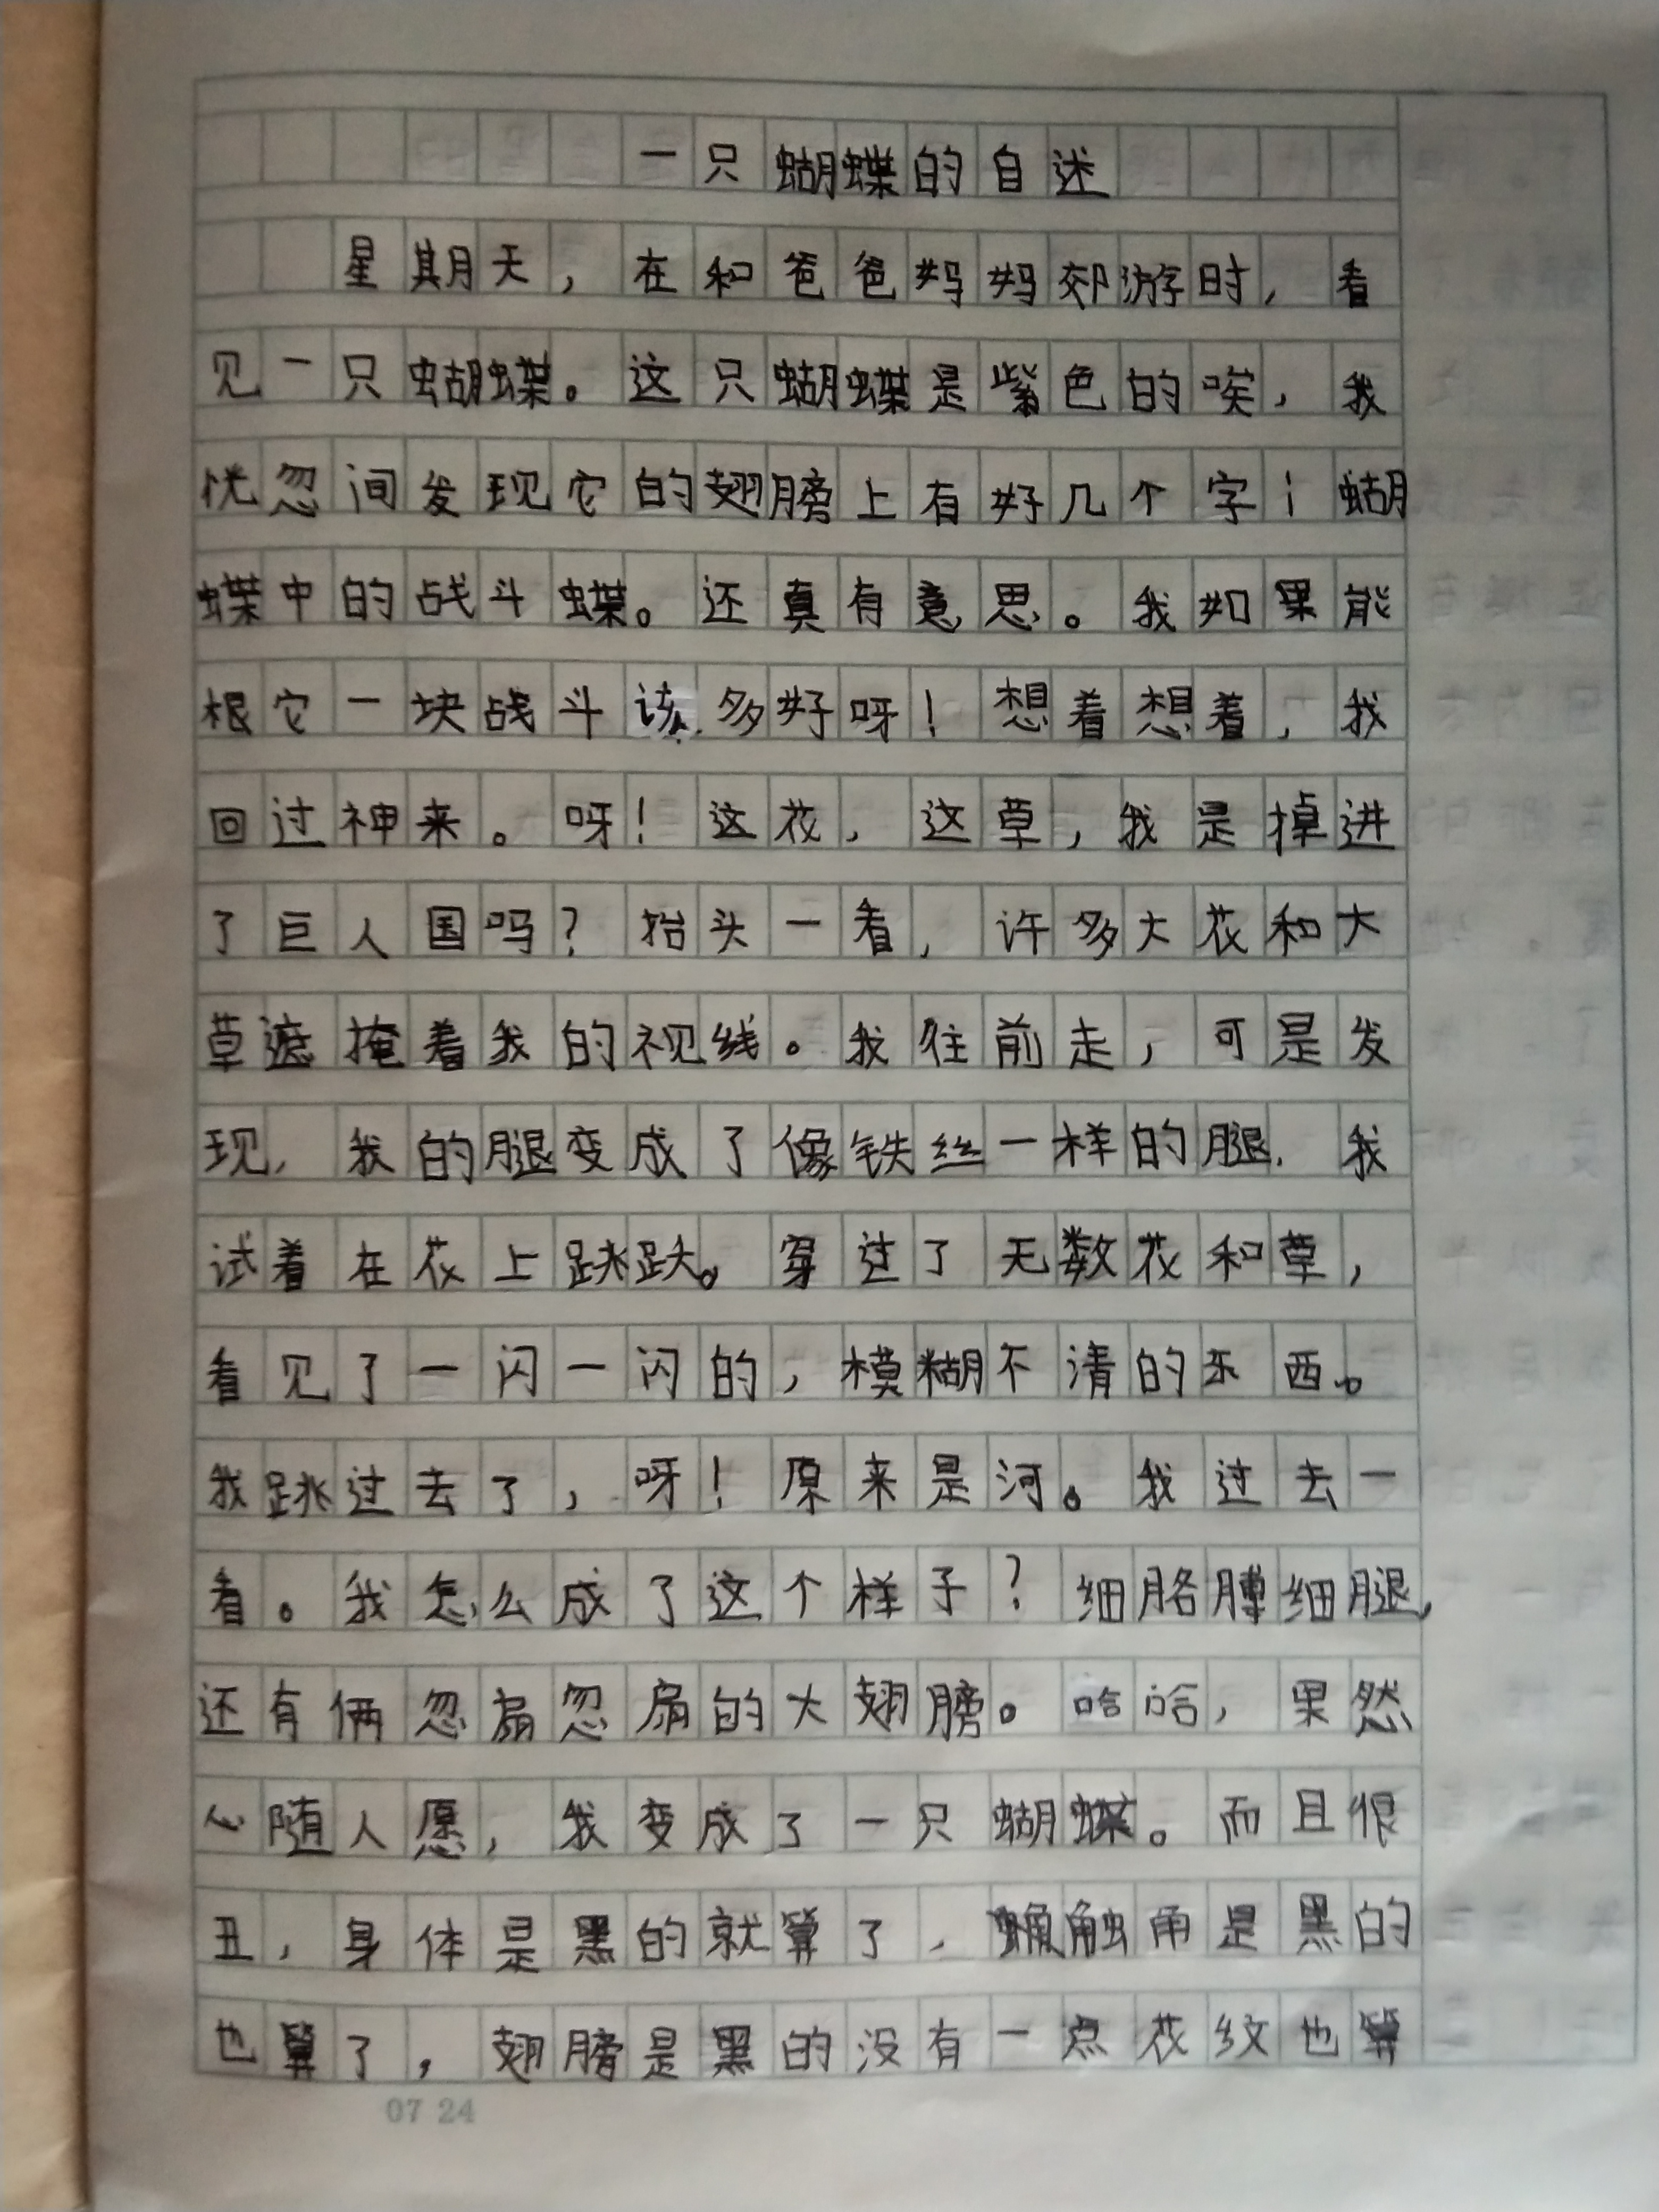 一只蝴蝶的自述
星期天，在和爸爸妈妈郊游时，看
见一只蝴蝶。这只蝴蝶是紫色的唉，我
恍忽间发现它的翅膀上有好几个字！蝴
蝶中的战斗蝶。还真有意思。我如果能
根它一块战斗该多好呀！想着想着，我
回过神来。呀！这花，这草，我是掉进
了巨人国吗？抬头一看，许多大花和大
草遮掩着我的视线。我往前走，可是发
现，我的腿变成了像铁丝一样的腿，我
试着在花上跳跃。穿过了无数花和草，
看见了一闪一闪的，模糊不清的东西。
我跳过去了，呀！原来是河。我过去一
看。我怎么成了这个样子？细胳膊细腿，
还有俩忽扇忽扇的大翅膀。哈哈，果然
心随人愿，我变成了一只蝴蝶。而且很
丑，身体是黑的就算了，触角是黑的
也算了，翅膀是黑的没有一点花纹也算
07 24